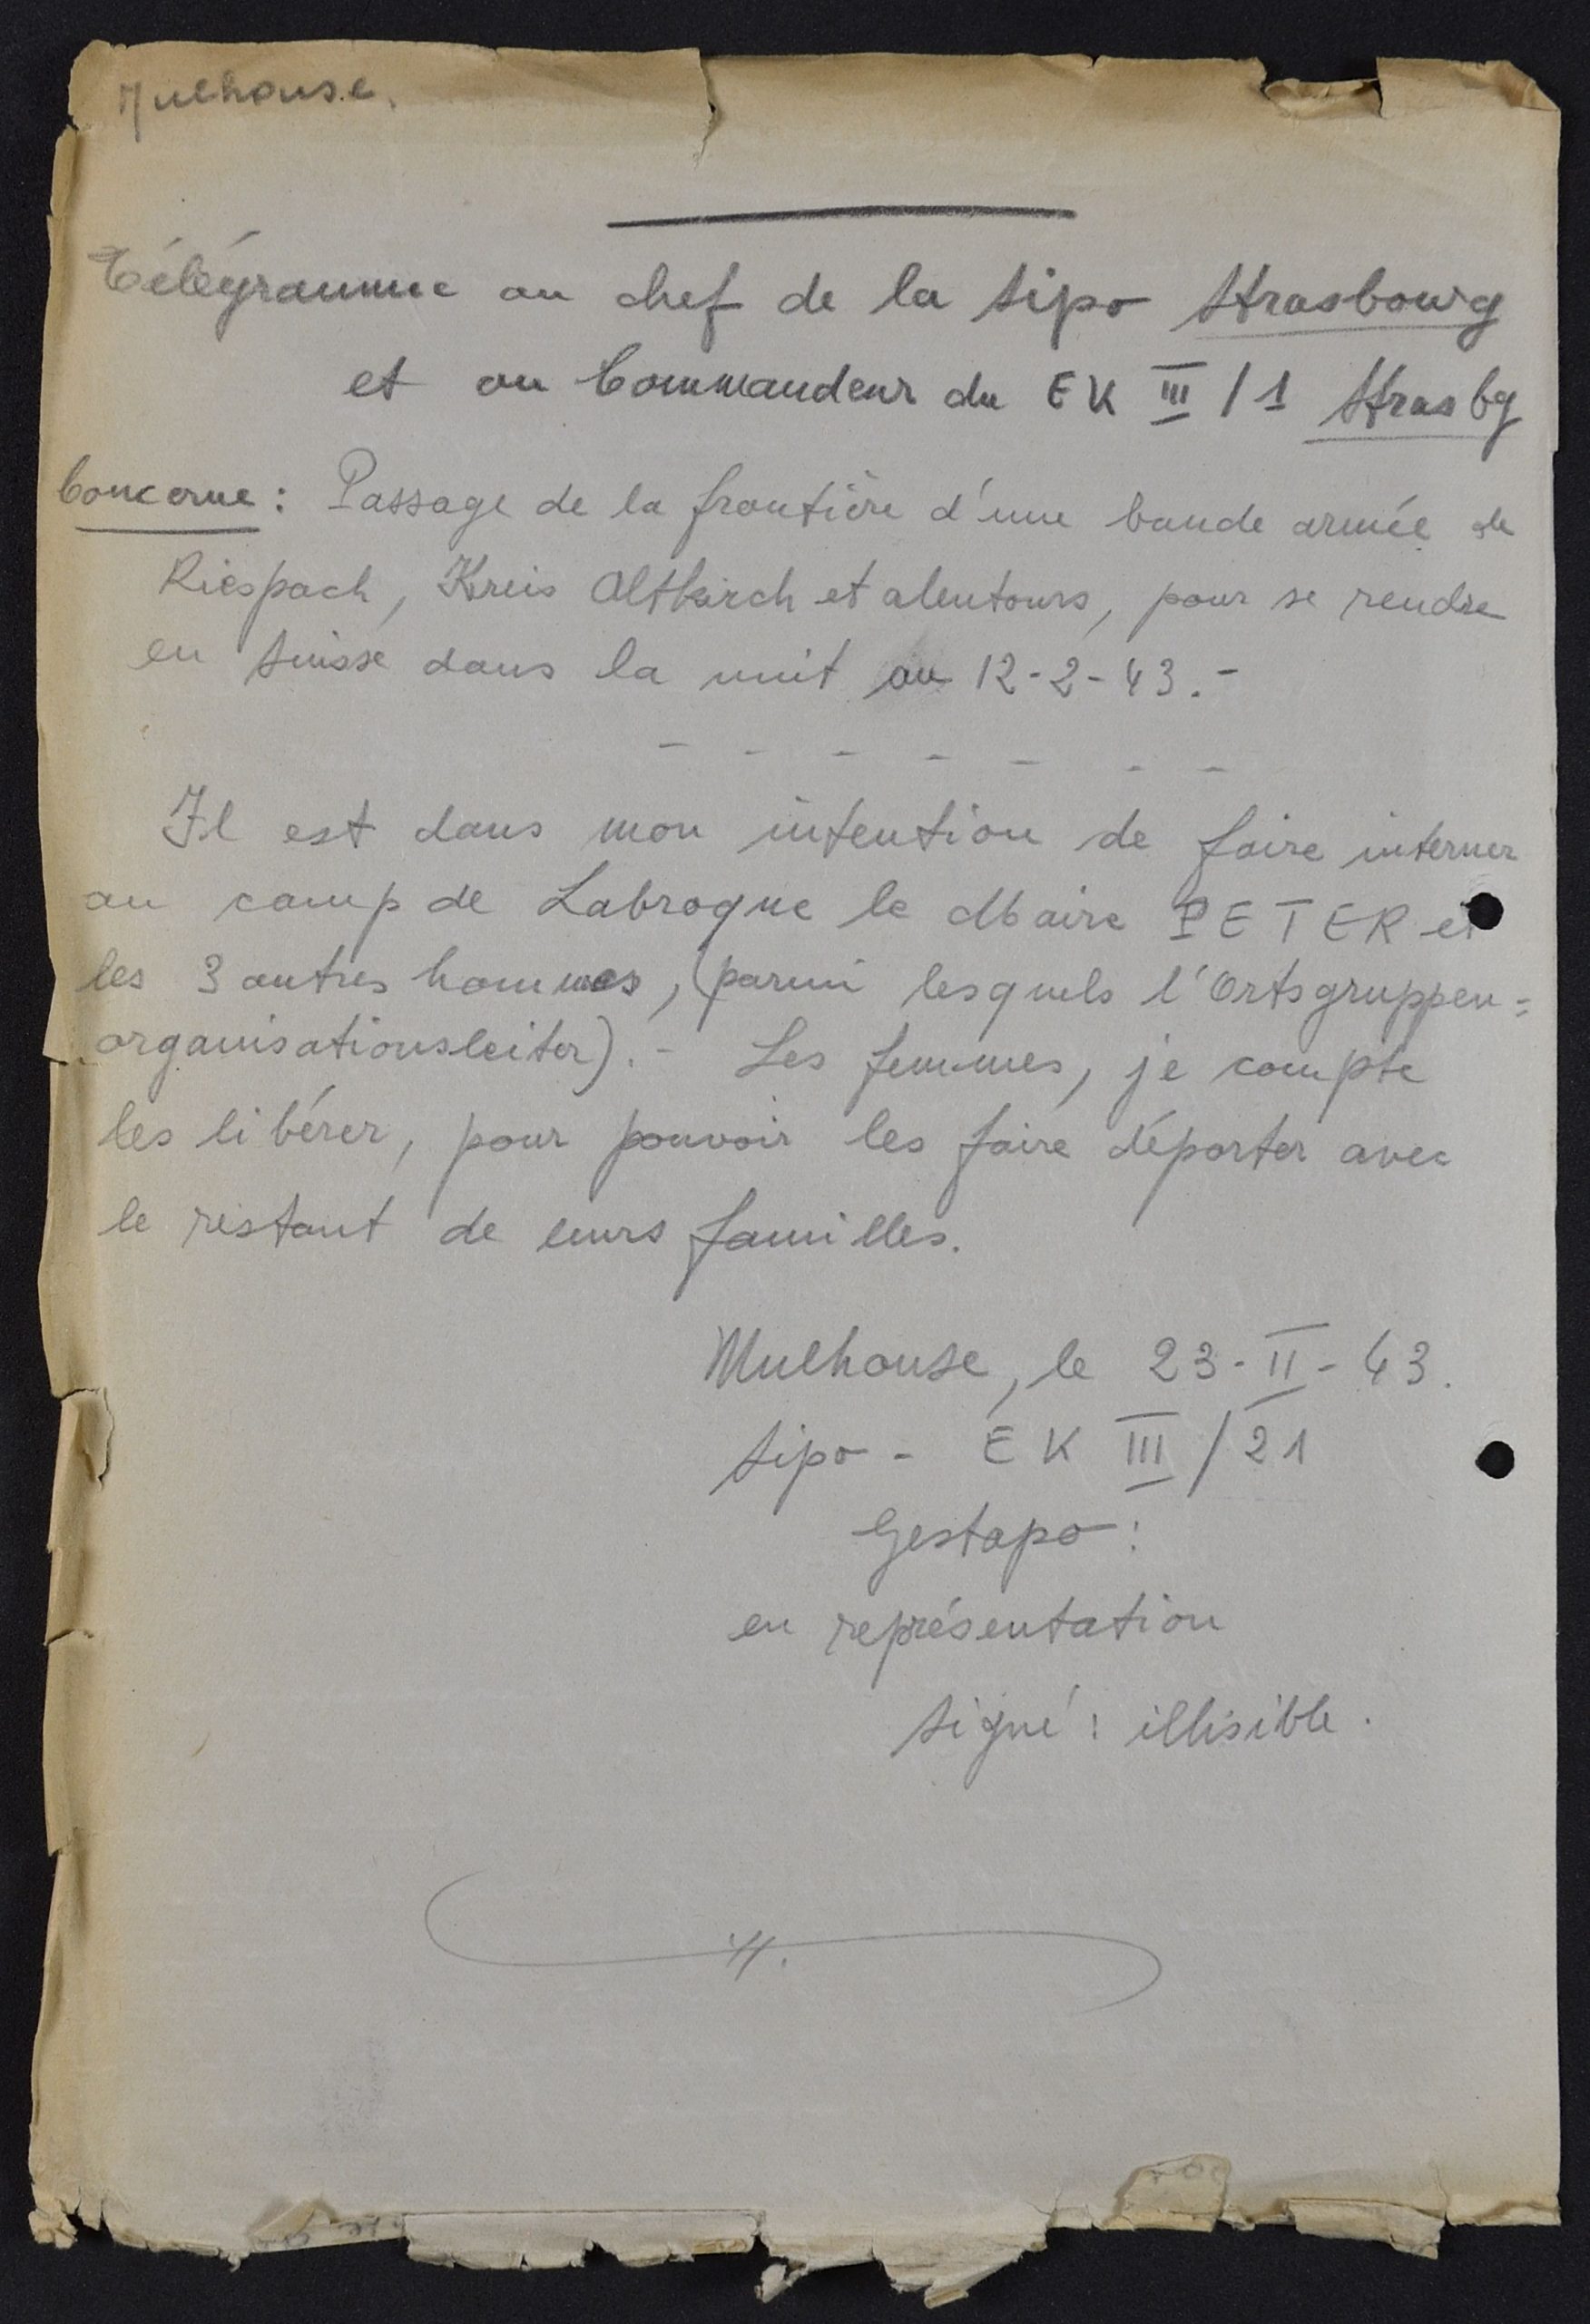 Mulhouse.
Télégramme au chef de la Sipo Strasbourg
et au Commandeur du EK III / 1 Strasbg
Concerne : Passage de la frontière d'une bande armée de
Riespach, Kreis Altkirch et alentours, pour se rendre
en Suisse dans la nuit au 12-2-43.-
- - - - - - -
Il est dans mon intention de faire interner
au camp de Labroque le Maire PETER et
les 3 autres hommes, (parmi lesquels l'Ortsgruppen=
organisationsleiter).- Les femmes, je compte
les libérer, pour pouvoir les faire déporter avec
le restant de leurs familles.
Mulhouse, le 23-II-43.
Sipo - EK III / 21
Gestapo :
en représentation
signé : illisible.